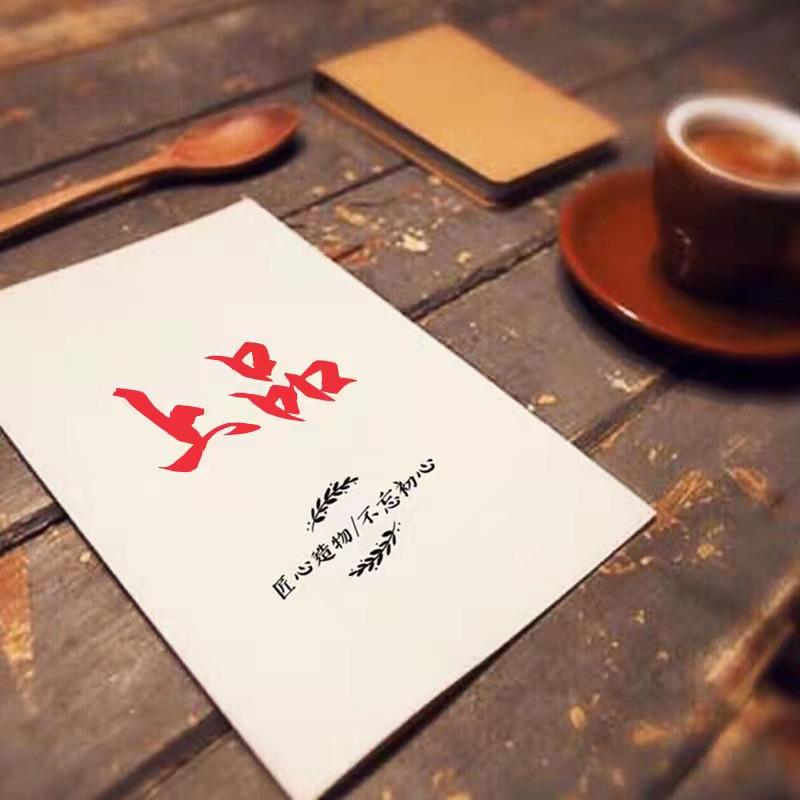 上品
匠心造物/不忘初心